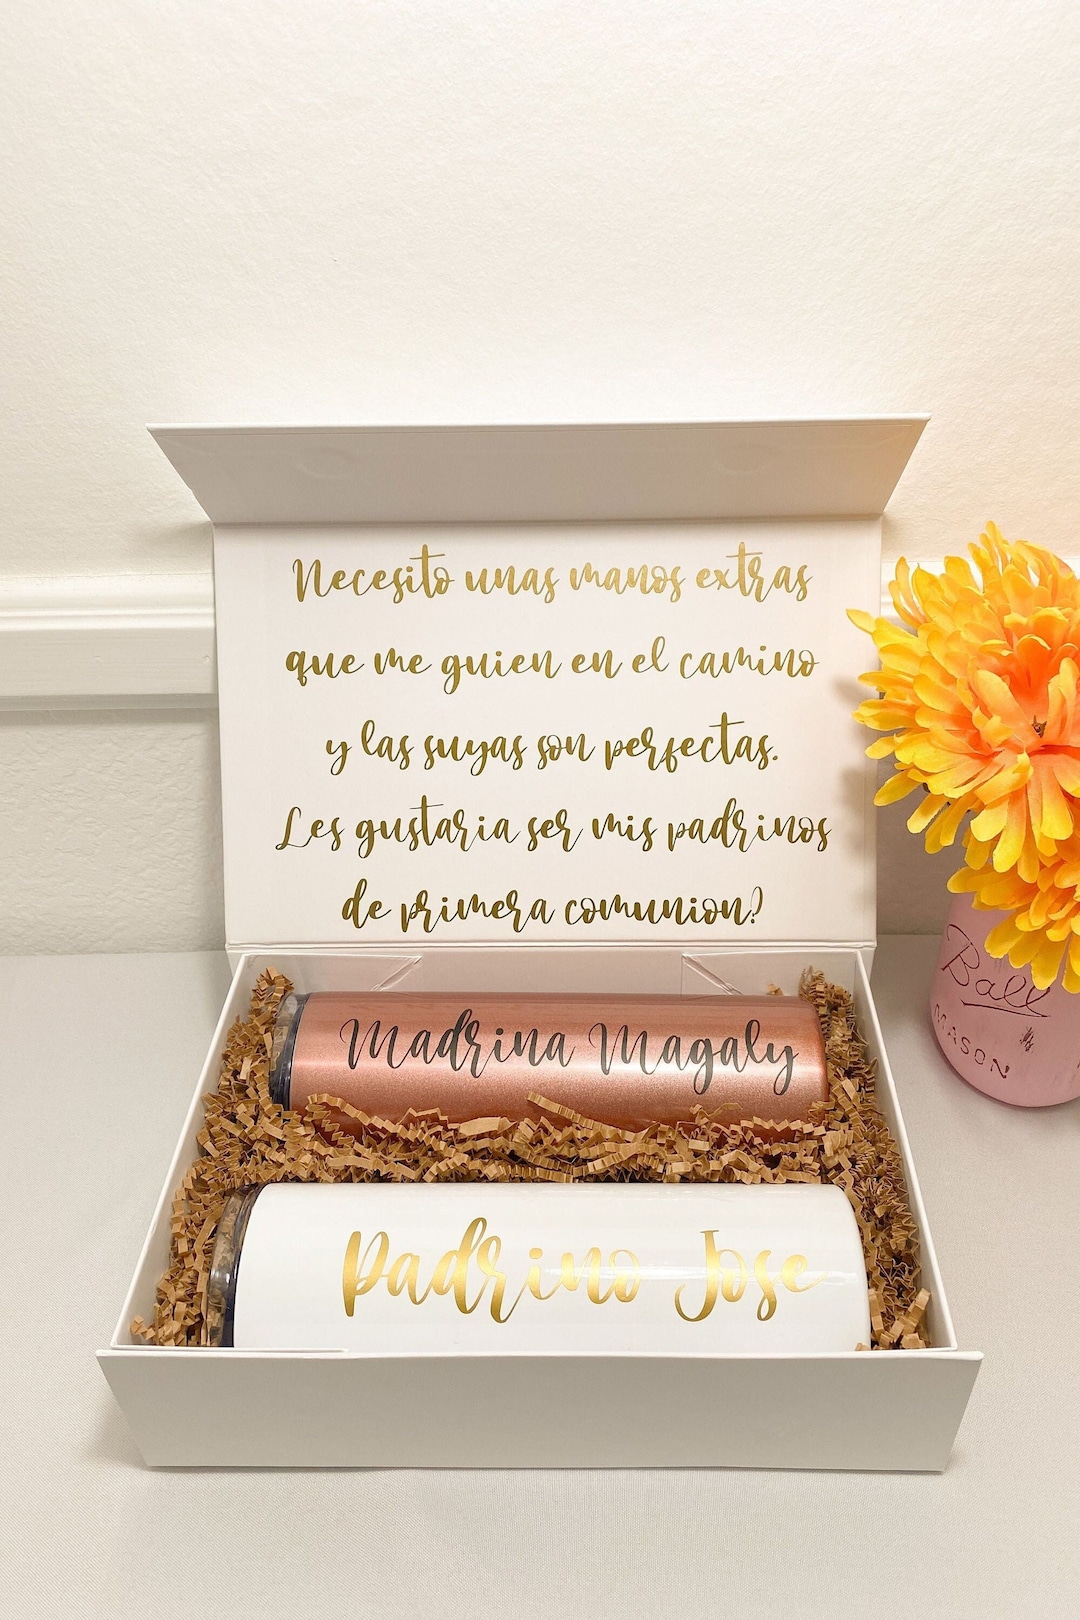 Necesito unas manos extras
que me guien en el camino
y las suyas son perfectas.
Les gustaria ser mis padrinos
de primera comunion?
Madrina Magaly
Padrino Jose
Ball
MASON